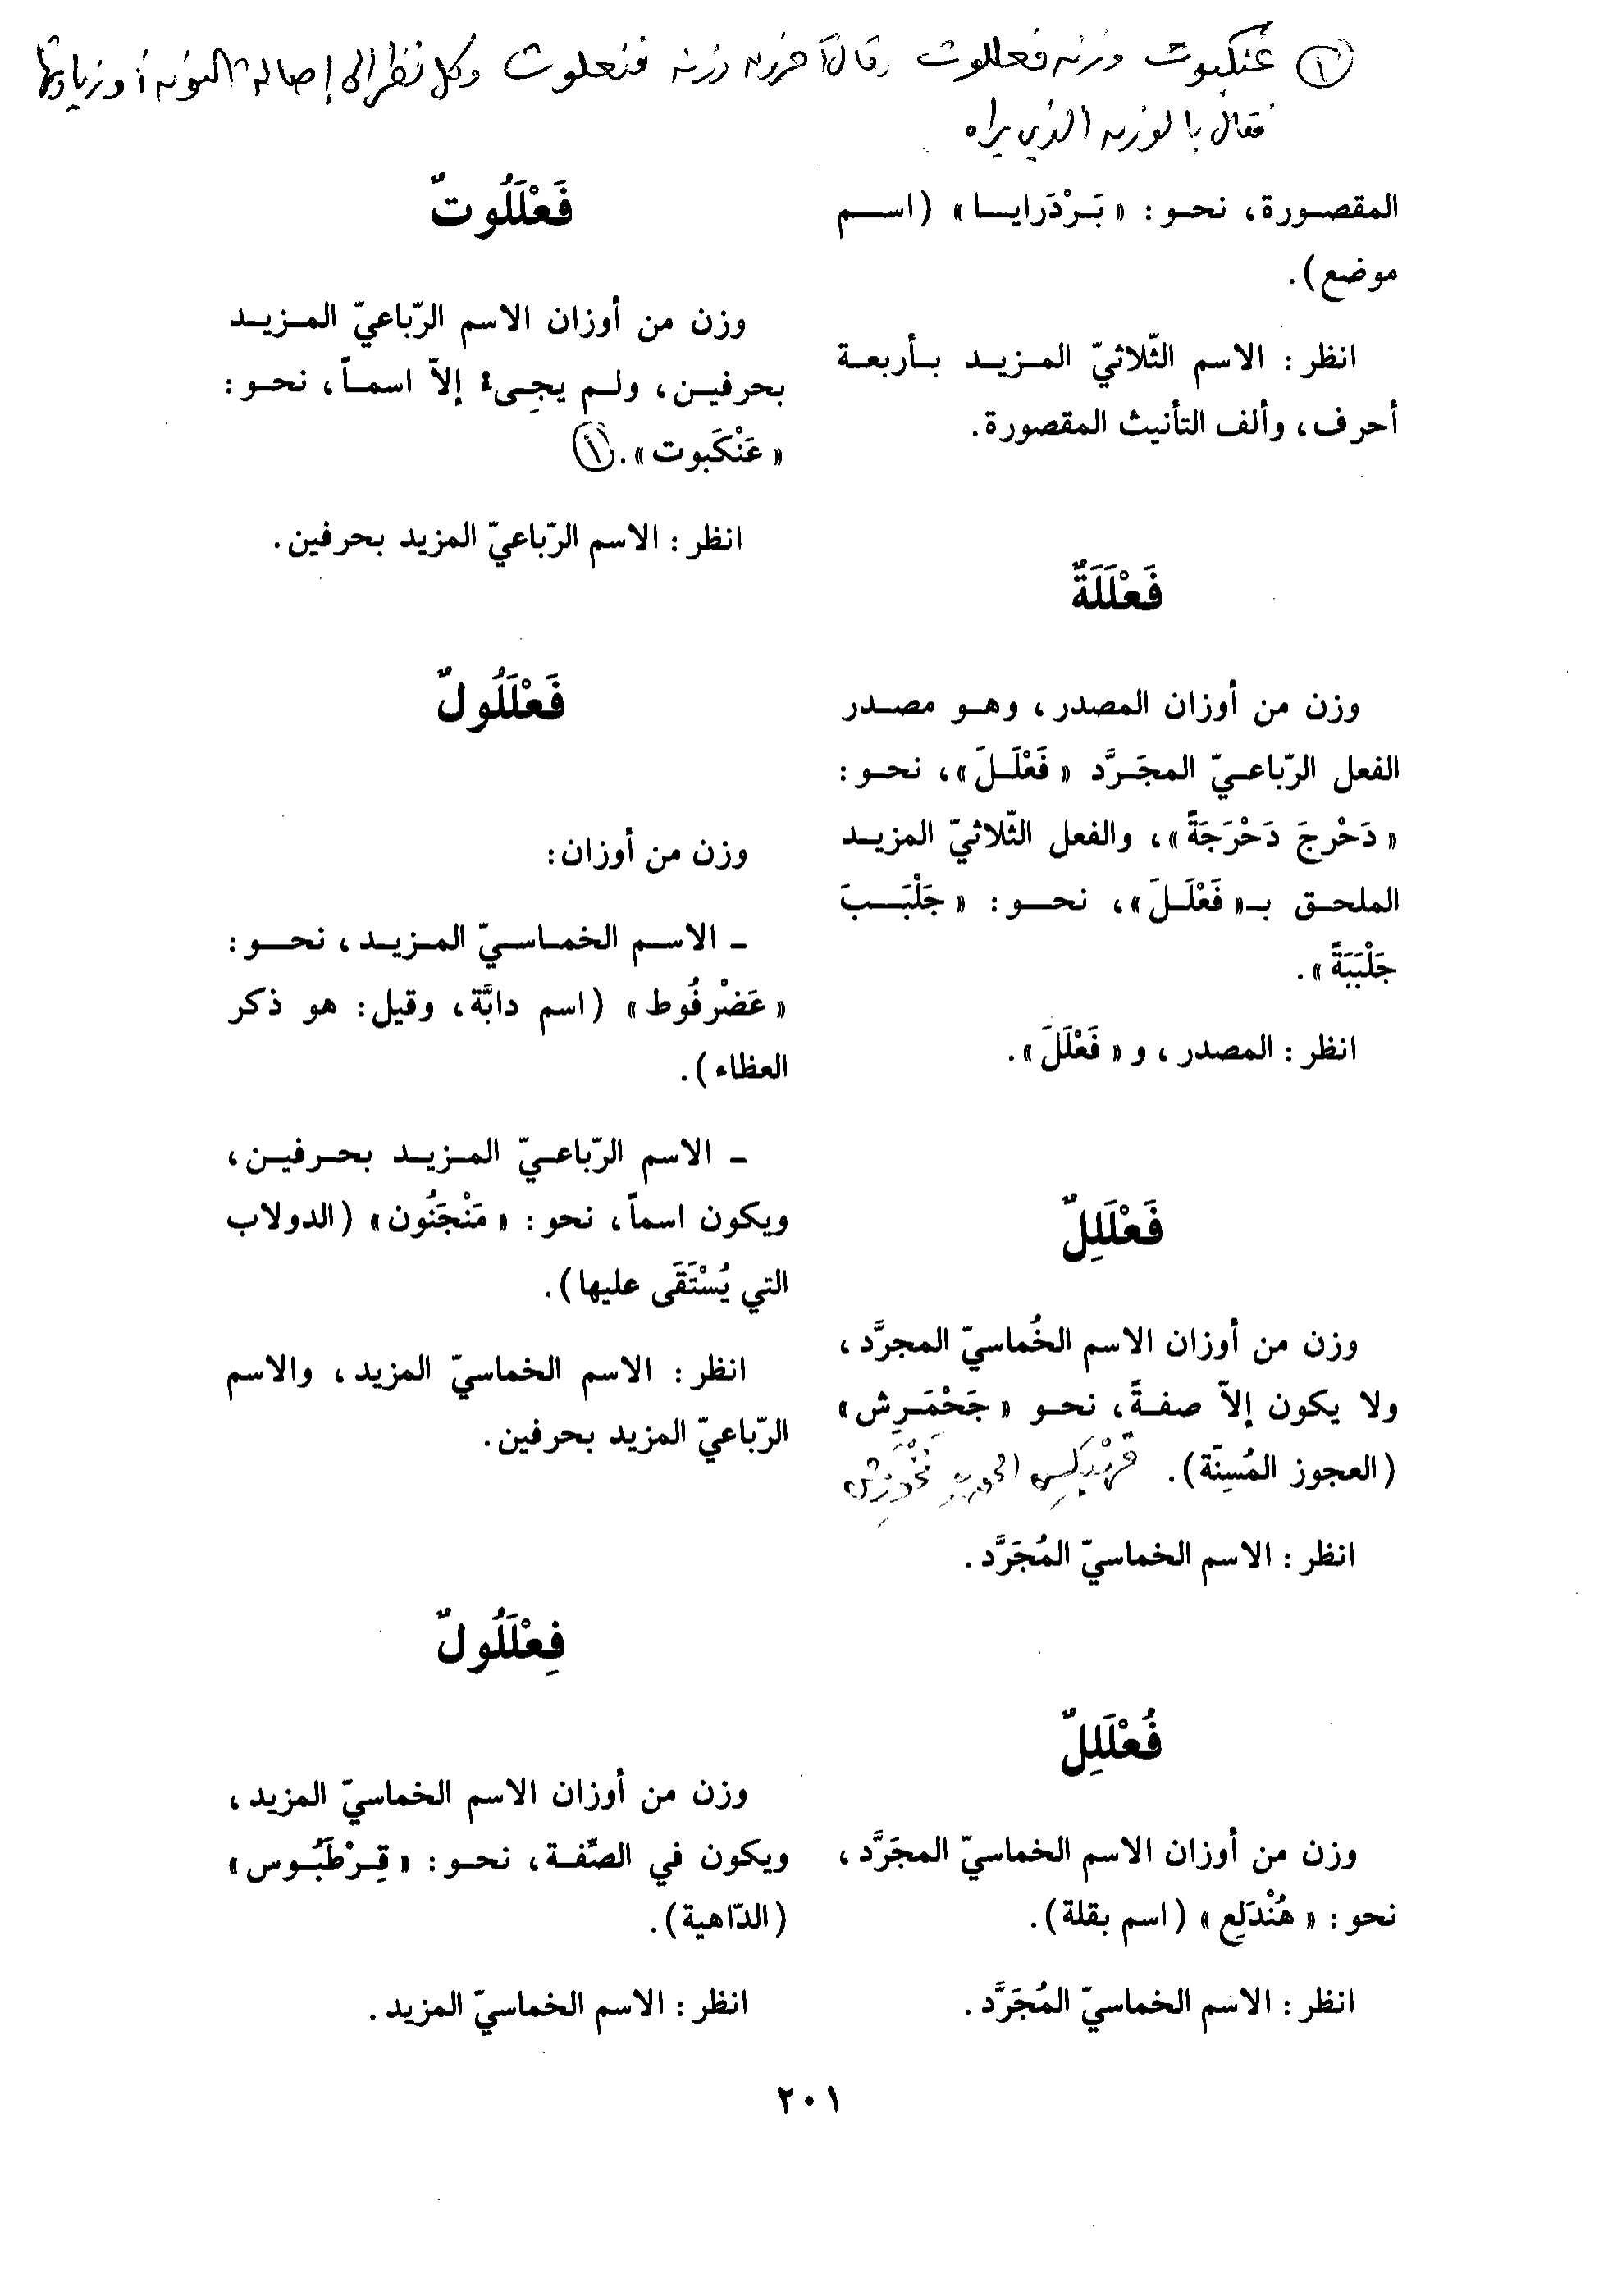 ① عنكبوت وزنه فعللوت وقال آخرون وزنه فنعلوت وكل نظر الى إصالة النون أو زيادتها
فقال بالوزن الذي يراه
المقصورة، نحو: «بَرْدَرايا» (اسم
موضع).
انظر: الاسم الثّلاثيّ المزيد بأربعة
أحرف، وألف التأنيث المقصورة.
فَعْلَلَةٌ
وزن من أوزان المصدر، وهو مصدر
الفعل الرّباعيّ المجَرَّد «فَعْلَلَ»، نحو:
«دَحْرجَ دَحْرَجَةً»، والفعل الثّلاثيّ المزيد
الملحق بـ«فَعْلَلَ»، نحو: «جَلْبَبَ
جَلْبَبَةً».
انظر: المصدر، و«فَعْلَلَ».
فَعْلَلِلٌ
وزن من أوزان الاسم الخُماسيّ المجرَّد،
ولا يكون إلاّ صفةً، نحو «جَحْمَرِش»
(العجوز المُسِنّة).
انظر: الاسم الخماسيّ المُجَرَّد.
فُعْلَلِلٌ
وزن من أوزان الاسم الخماسيّ المجَرَّد،
نحو: «هُنْدَلِع» (اسم بقلة).
انظر: الاسم الخماسيّ المُجَرَّد.
فَعْلَلُوتٌ
وزن من أوزان الاسم الرّباعيّ المزيد
بحرفين، ولم يجِىء إلاّ اسماً، نحو:
«عَنْكَبوت». ①
انظر: الاسم الرّباعيّ المزيد بحرفين.
فَعْلَلُولٌ
وزن من أوزان:
ـ الاسم الخماسيّ المزيد، نحو:
«عَضْرفُوط» (اسم دابَّة، وقيل: هو ذكر
العظاء).
ـ الاسم الرّباعيّ المزيد بحرفين،
ويكون اسماً، نحو: «مَنْجَنُون» (الدولاب
التي يُسْتَقَى عليها).
انظر: الاسم الخماسيّ المزيد، والاسم
الرّباعيّ المزيد بحرفين.
فِعْلَلُولٌ
وزن من أوزان الاسم الخماسيّ المزيد،
ويكون في الصِّفة، نحو: «قِرْطَبُوس»
(الدّاهية).
انظر: الاسم الخماسيّ المزيد.
٢٠١